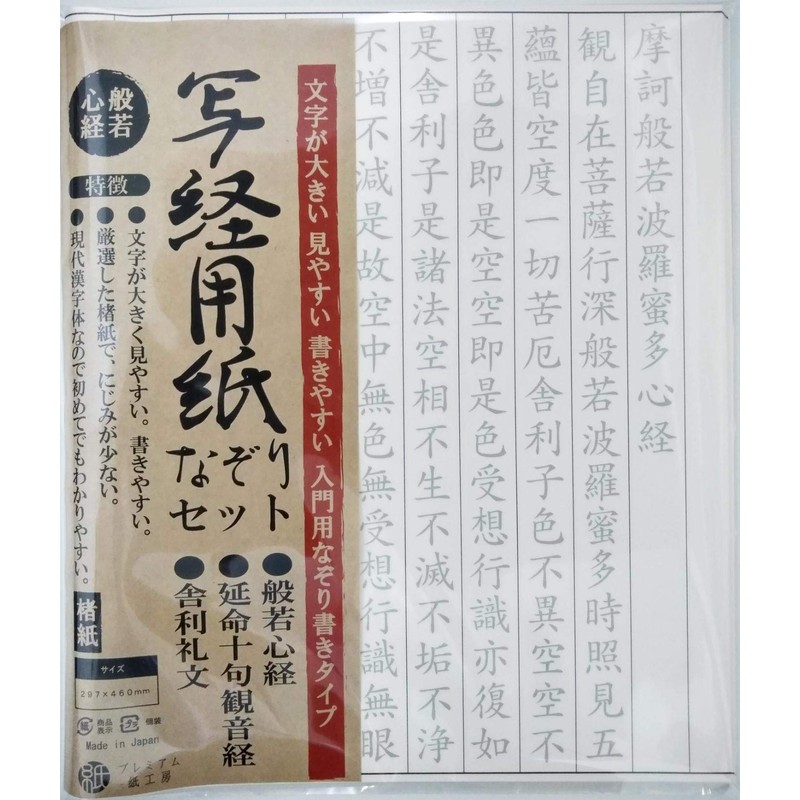 摩訶般若波羅蜜多心経
観自在菩薩行深般若波羅蜜多時照見五
蘊皆空度一切苦厄舎利子色不異空空不
異色色即是空空即是色受想行識亦復如
是舎利子是諸法空相不生不滅不垢不浄
不増不減是故空中無色無受想行識無眼
文字が大きい 見やすい 書きやすい 入門用なぞり書きタイプ
写経用紙
なぞり
セット
●般若心経
●延命十句観音経
●舎利礼文
般若
心経
特徴
●文字が大きく見やすい。書きやすい。
●厳選した楮紙で、にじみが少ない。
●現代漢字体なので初めてでもわかりやすい。
楮紙
サイズ
297×460mm
紙 商品表示
プラ 個装
Made in Japan
紙
プレミアム
紙工房